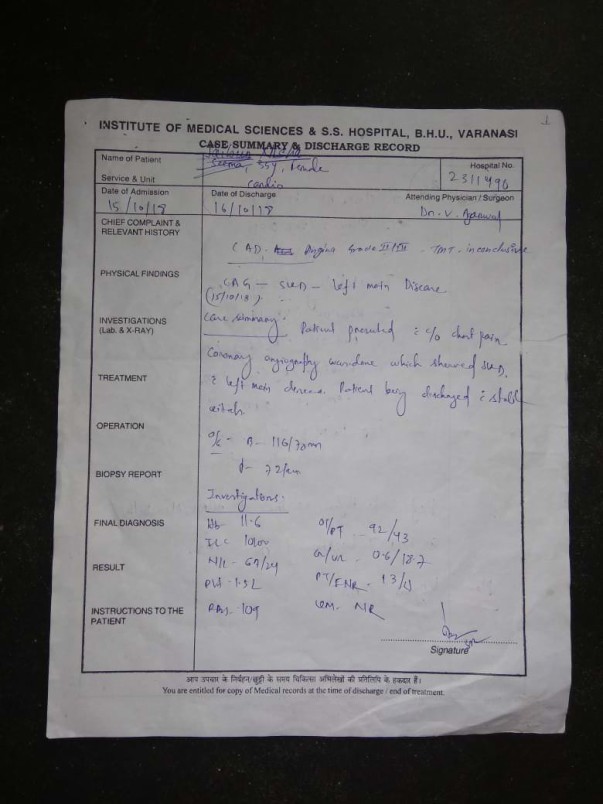 INSTITUTE OF MEDICAL SCIENCES & S.S. HOSPITAL, B.H.U., VARANASI
CASE SUMMARY & DISCHARGE RECORD
Name of Patient
Seema, 55y, Female
Hospital No.
2311490
Service & Unit
Cardio
Date of Admission
15/10/18
Date of Discharge
16/10/18
Attending Physician / Surgeon
Dr. V. Agarwal
CHIEF COMPLAINT &
RELEVANT HISTORY
CAD. Angina Grade TMT - inconclusive
PHYSICAL FINDINGS
CAG - SVD - Left main Disease
(15/10/18)
INVESTIGATIONS
(Lab. & X-RAY)
Case summary: Patient presented c c/o chest pain
Coronary angiography was done which showed SVD
TREATMENT
c left main disease. Patient being discharged c stable
vitals.
OPERATION
O/E - 116/70
BIOPSY REPORT
72/min
Investigations:
FINAL DIAGNOSIS
Hb 11.6
OT/PT - 92/43
TLC
RESULT
N/L - 67/24
0.6/18.7
PT/INR - 13/
INSTRUCTIONS TO THE
PATIENT
RBS 109
NR
Signature
आप उपचार के निर्वहन/छुट्टी के समय चिकित्सा अभिलेखों की प्रतिलिपि के हकदार हैं।
You are entitled for copy of Medical records at the time of discharge / end of treatment.